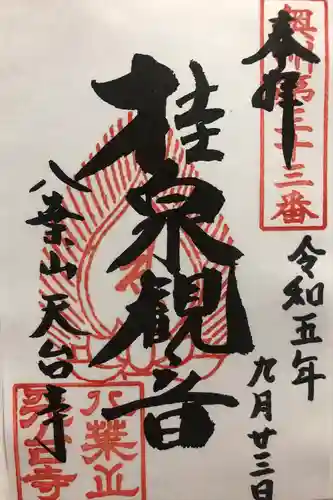 奉拝
奥州第三十三番
令和五年
九月廿三日
桂泉観音
八葉山天台寺
八葉山
天台寺